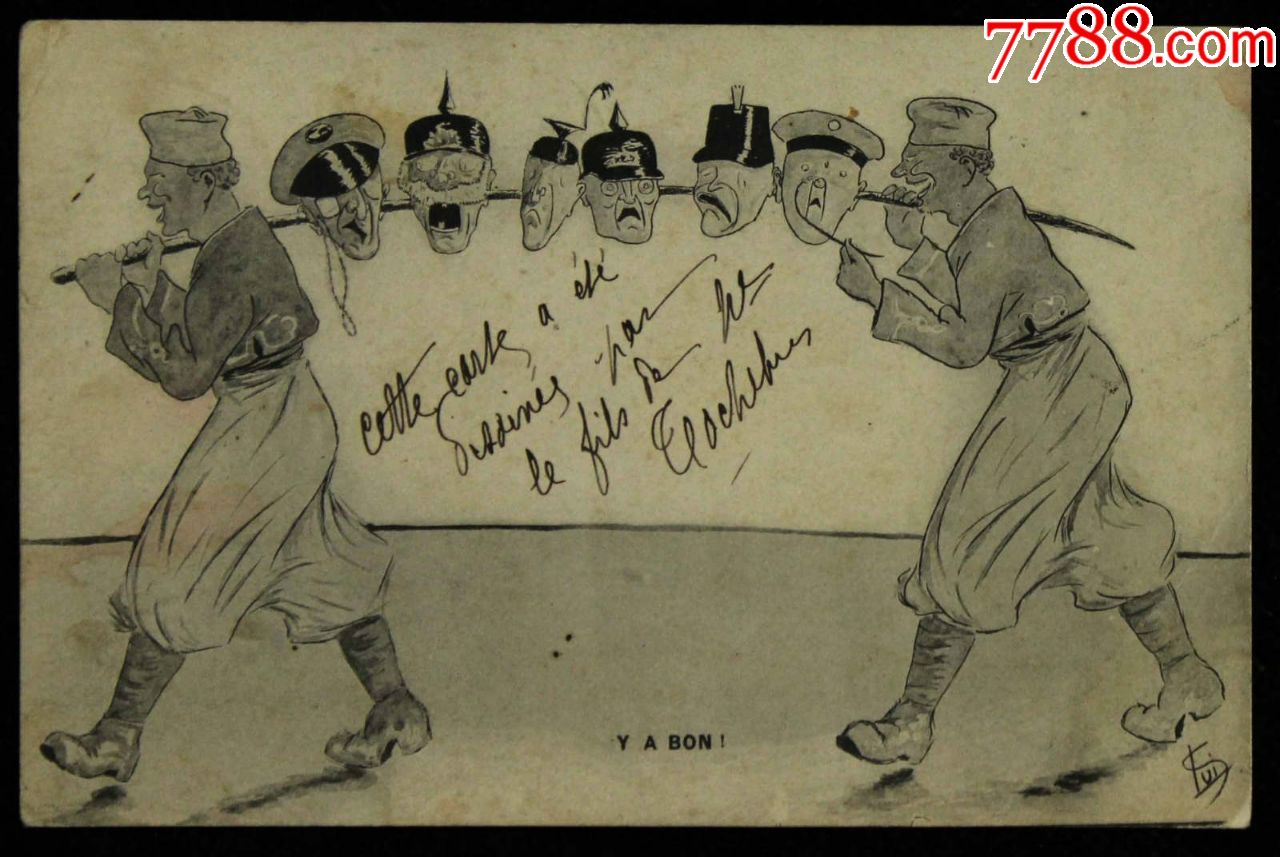 7788.com
cette carte a été
dessinée par
le fils de Mr
Y A BON !